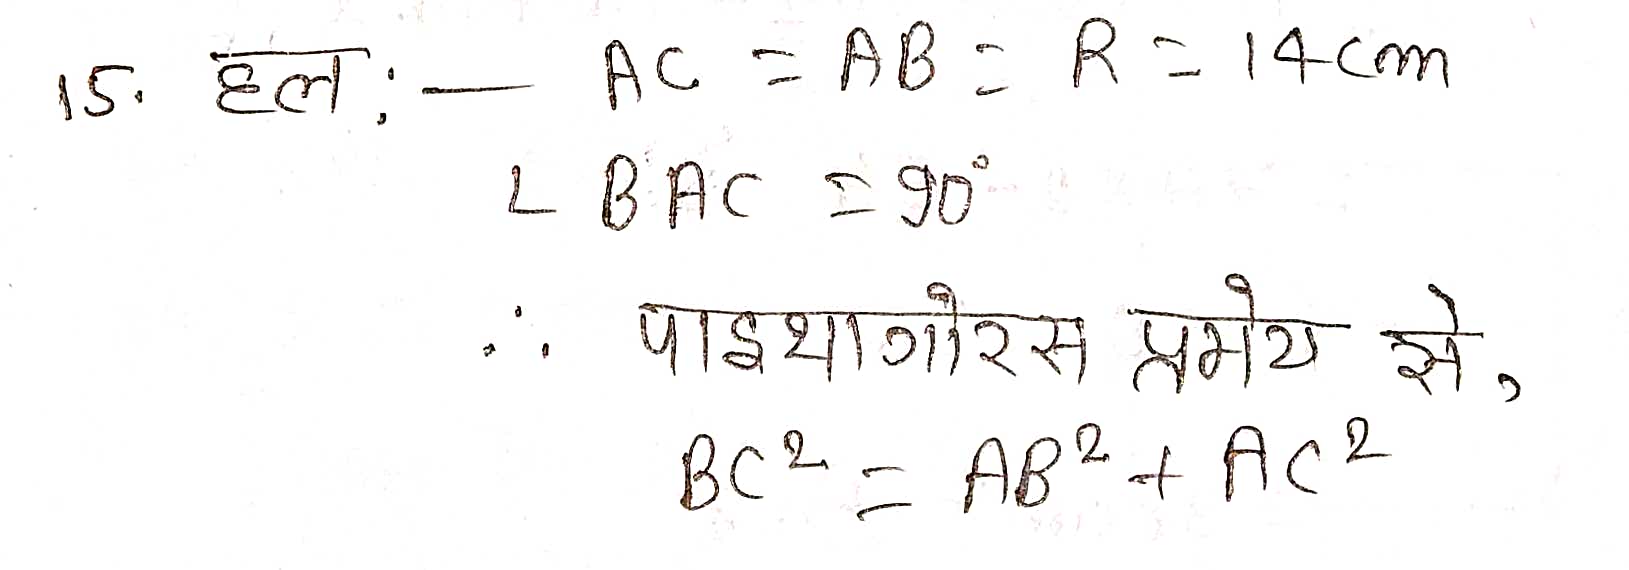 15. हल :— AC = AB = R = 14cm
∠BAC = 90°
∴ पाइथागोरस प्रमेय से,
BC² = AB² + AC²